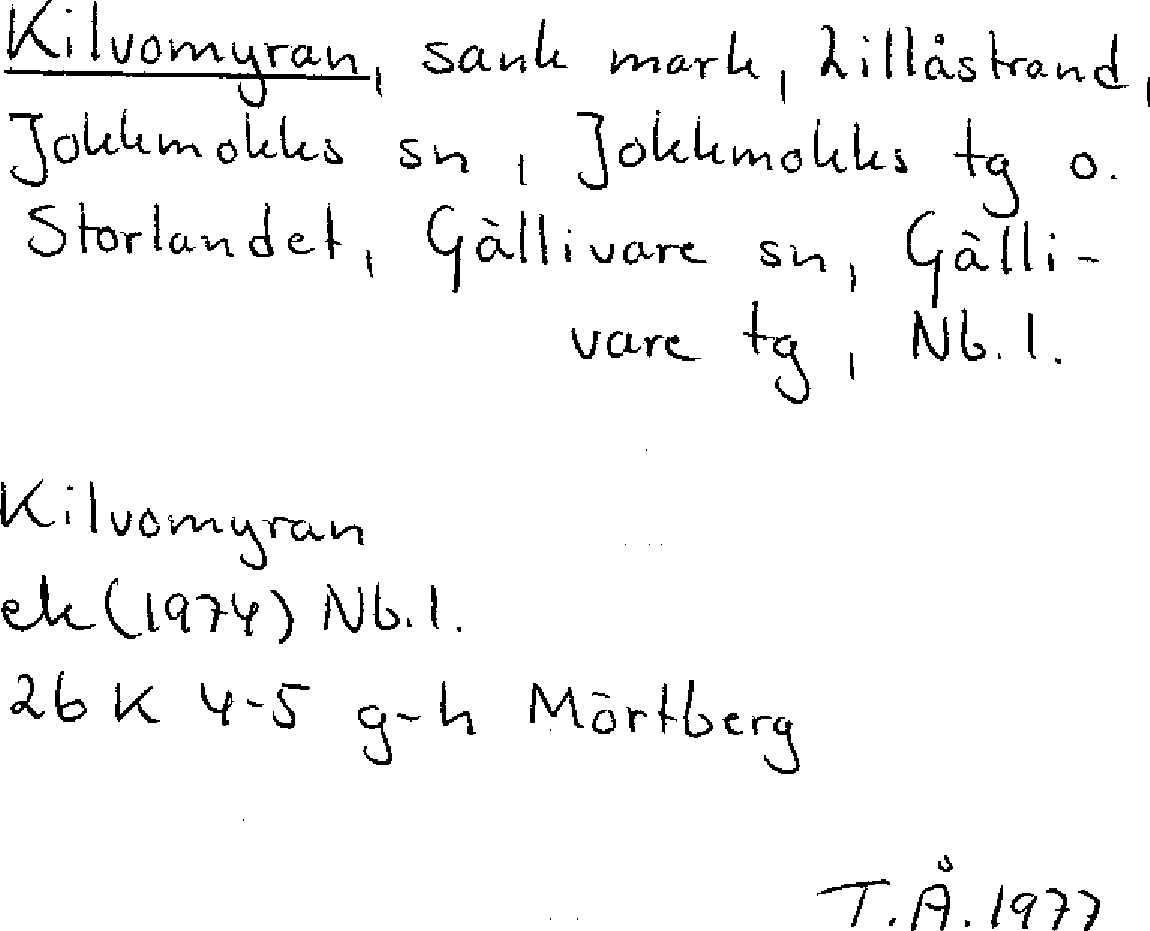 Kilvomyran, sank mark, Lillåstrand,
Jokkmokks sn, Jokkmokks tg o.
Storlandet, Gällivare sn, Gälli-
vare tg, Nb. l.
Kilvomyran
ek (1974) Nb. l.
26 K 4-5 g-h Mörtberg
T.Å. 1977